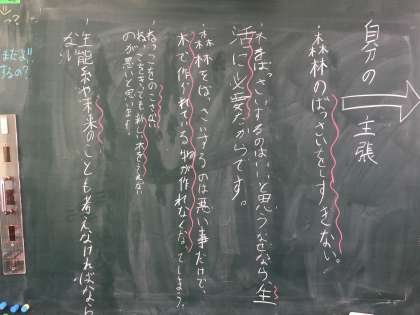 自分の主張
・森林のばっさいをしすぎない。
・木をばっさいするのはいいと思うなぜなら生
活に必要だからです。
・森林をばっさいするのは悪い事だけど、
木で作られている物が作れなくなってしまう。
ねっこをのこさない
のが悪いと思います。
・生態系や未来のことも考えなければなら
ない
まだよ
するの?